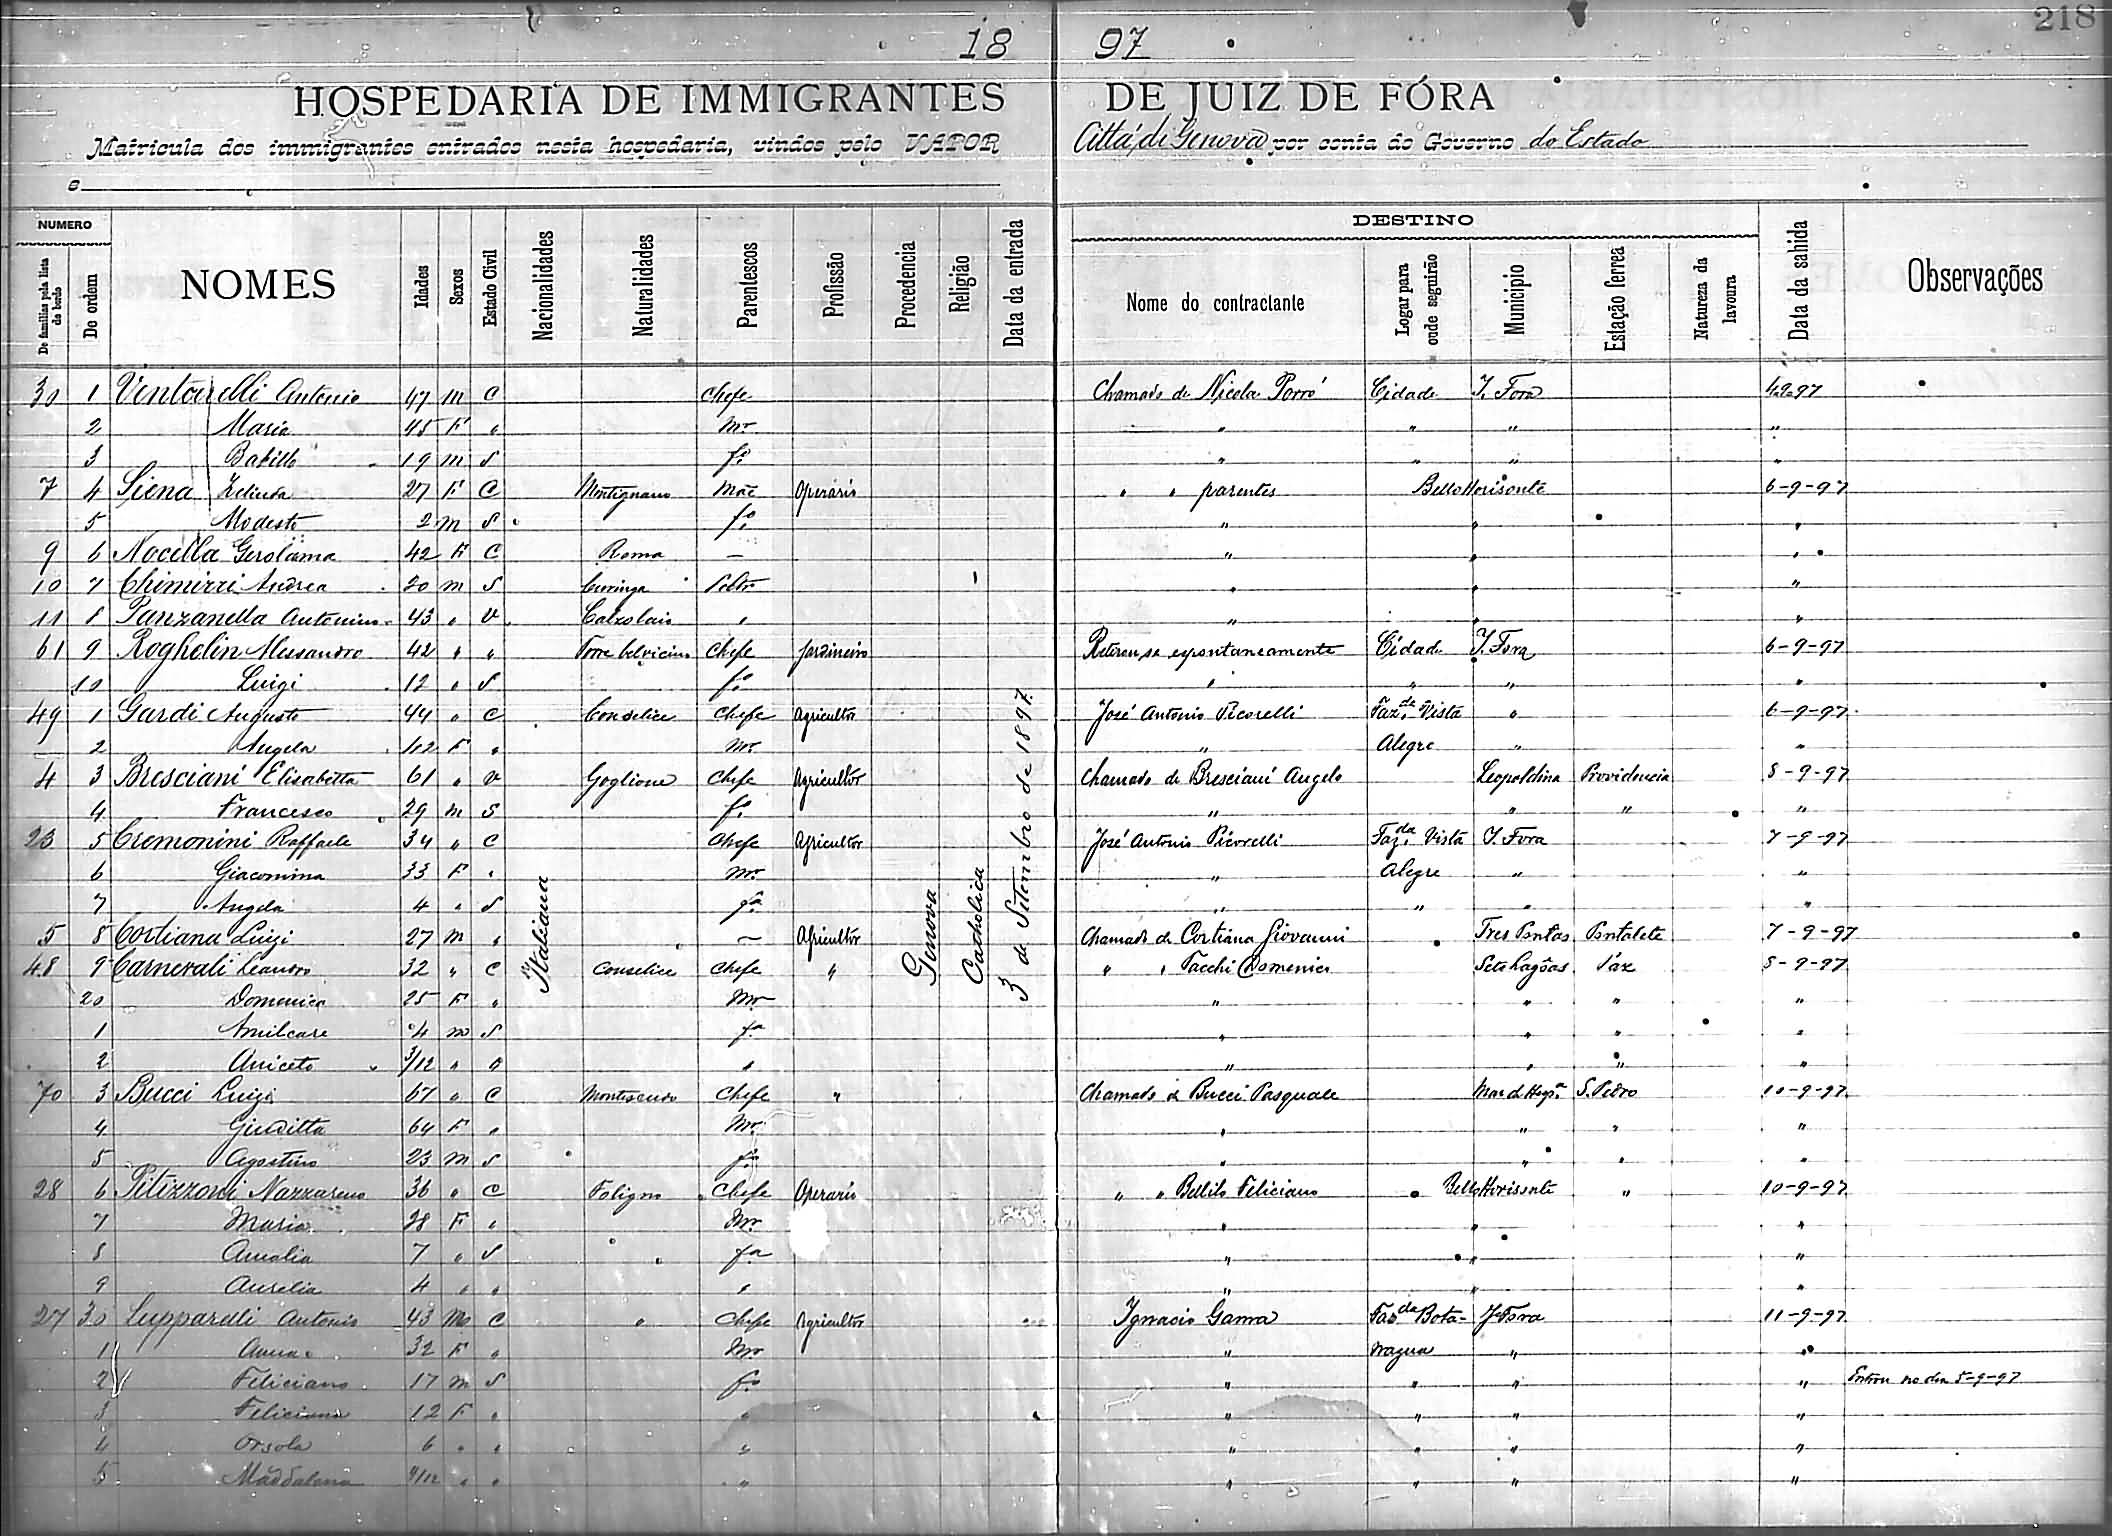 218
18 97
HOSPEDARIA DE IMMIGRANTES DE JUIZ DE FÓRA
Matricula dos immigrantes entrados nesta hospedaria, vindos pelo VAPOR Cittá di Genova por conta do Governo do Estado
e
NUMERO DESTINO
De familias pela lista de bordo De ordem NOMES Idades Sexos Estado Civil Nacionalidades Naturalidades Parentescos Profissão Procedencia Religião Data da entrada Nome do contractante Logar para onde seguirão Municipio Estação ferrea Natureza da lavoura Data da sahida Observações
Italiana Genova Catholica 3 de Setembro de 1897
30 1 Antonio 47 m C Chefe Chamado de Nicola Porró Cidade J. Fora
2 Maria 45 F " Mr " " " "
3 19 m S fo " " " "
7 4 Siena 27 F C Montignano Mãe Operario " " parentes Bello Horisonte 6-9-97
5 Modesto 2 m S fo " " "
9 6 Nocella Gerolama 42 F C Roma — " " "
10 7 Chimirri Andrea 20 m S Curinga Soltro " " "
11 8 Panzanella Antonino 43 " V " " " "
61 9 Roghelin Alessandro 42 " " Torre belvicino Chefe Jardineiro Retirou se espontaneamente Cidade J. Fora 6-9-97
10 Luigi 12 " S fo " " " "
49 1 Gardi Augusto 44 " C Conselice Chefe Agricultor José Antonio Picorelli Fazda Vista " 6-9-97
2 Angela 42 F " Mr " Alegre " "
4 3 Bresciani Elisabetta 61 " V Goglione Chefe Agricultor Chamado de Bresciani Angelo Leopoldina Providencia 8-9-97
4 Francesco 29 m S fo " " " "
23 5 Cremonini Raffaele 34 " C Chefe Agricultor José Antonio Picorelli Fazda Vista J. Fora 7-9-97
6 Giacomina 33 F " Mr " Alegre " "
7 Angela 4 " S fa " " " "
5 8 Cortiana Luigi 27 m " — Agricultor Chamado de Cortiana Giovanni Tres Pontas Pontalete 7-9-97
48 9 Carnevali Leandro 32 " C Conselice Chefe " " " Tacchi Domenico Sete Lagôas 8-9-97
20 Domenica 25 F " Mr " " " "
1 Amilcare 4 m S fo " " " "
2 Aniceto 3/12 " " " " " " "
70 3 Bucci Luigi 67 " C Chefe " Chamado de Bucci Pasquale Mar d Hespa S. Pedro 10-9-97
4 Giuditta 64 F " Mr " " " "
5 Agostino 23 m S fo " " " "
28 6 Pitizzoni Nazzareno 36 " C Foligno Chefe Operario " " Feliciano Bello Horisonte " 10-9-97
7 Maria 28 F " Mr " " "
8 Amalia 7 " S fa " " "
9 Aurelia 4 " " " " " "
27 30 Lupparelli Antonio 43 M C " Chefe Agricultor Ignacio Gama Fazda Bota- J. Fora 11-9-97
1 Anna 32 F " Mr " fragua " "
2 Feliciano 17 m S fo " " " " Entrou no dia 5-9-97
3 Feliciana 12 F " " " " " "
4 Orsola 6 " " " " " " "
5 Maddalena " " " " " " "